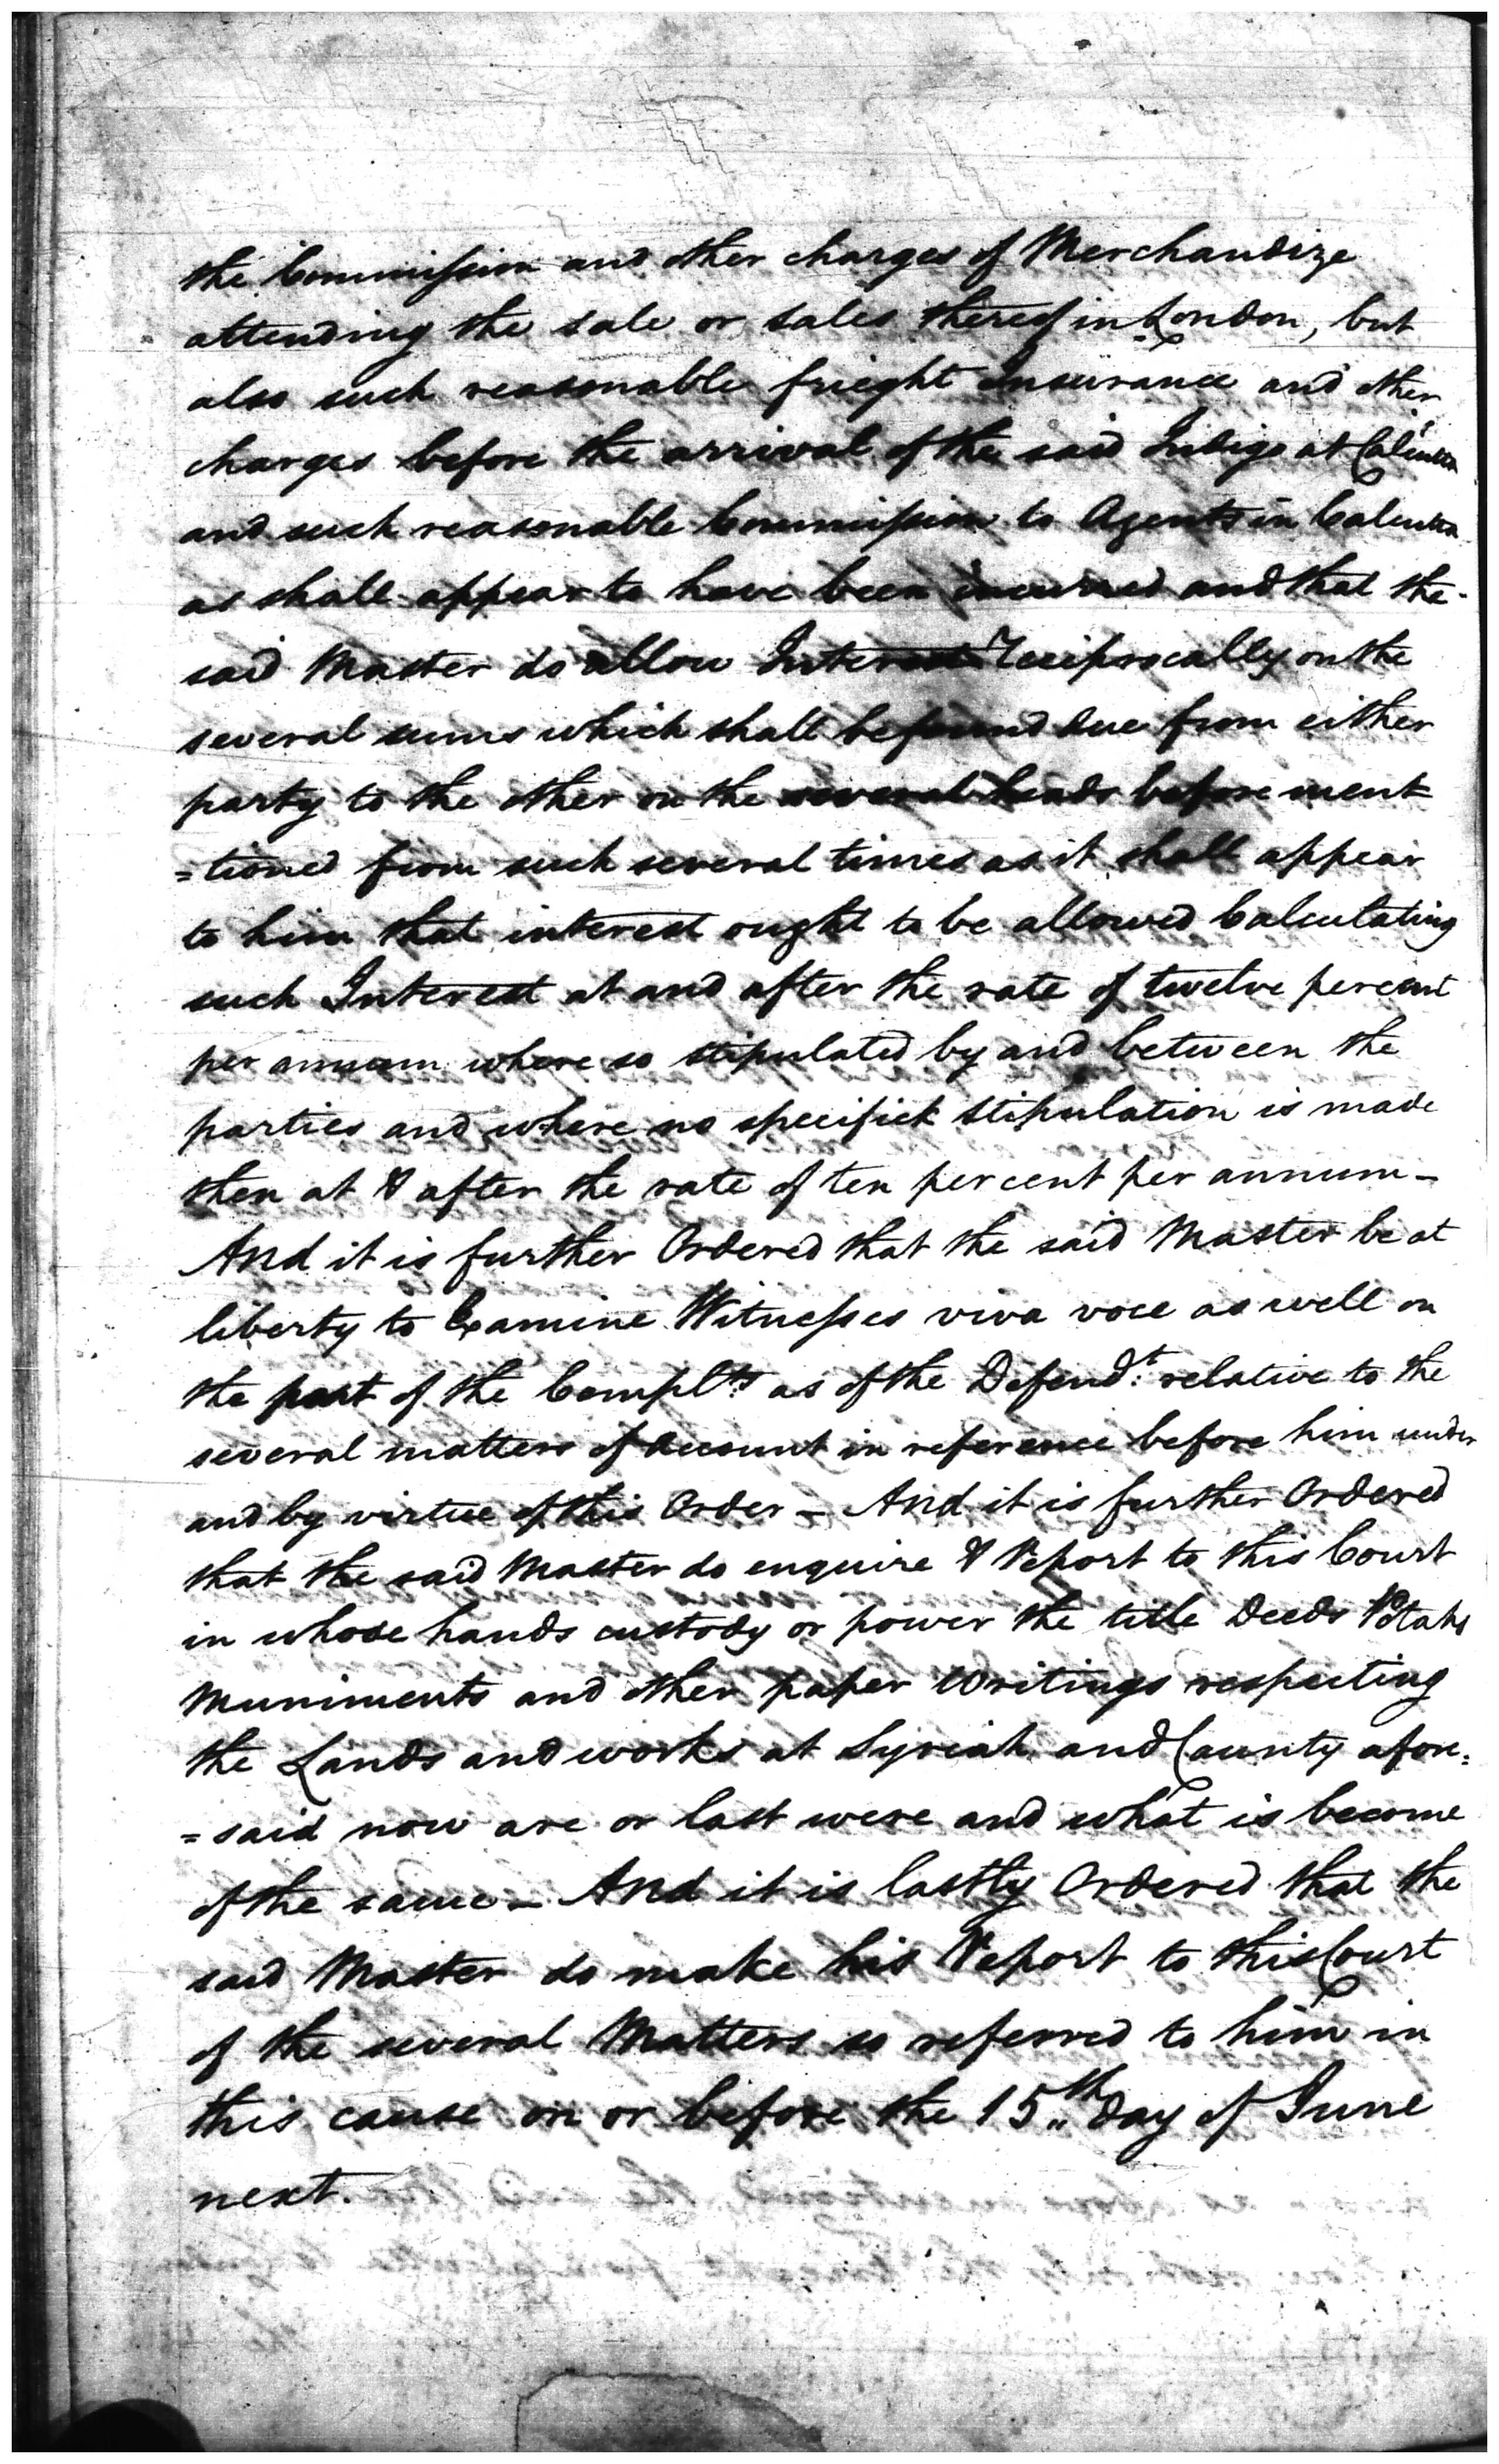 the Commission and other charges of Merchandize
attending the sale or sales thereof in London, but
also such reasonable frieght Insurance and other
charges before the arrival of the said Indigo at Calcutta
and such reasonable Commission to Agents in Calcutta
as shall appear to have been incurred and that the
said Master do allow Interest reciprocally on the
several sums which shall be found due from either
party to the other on the several heads before ment
=tioned from such several times as it shall appear
to him that interest ought to be allowed Calculating
such Interest at and after the rate of twelve percent
per annum where so stipulated by and between the
parties and where no specifick stipulation is made
then at & after the rate of ten percent per annum –
And it is further Ordered that the said Master be at
liberty to Examine Witnesses viva voce as well on
the part of the Complts as of the Defendt. relative to the
several matters of Account in reference before him under
and by virtue of this Order – And it is further Ordered
that the said Master do enquire & Report to this Court
in whose hands custody or power the title Deeds Potahs
Muniments and other paper Writings respecting
the Lands and works at and afore=
=said now are or last were and what is become
of the same – And it is lastly Ordered that the
said Master do make his Report to this Court
of the several Matters so referred to him in
this cause on or before the 15th day of June
next.